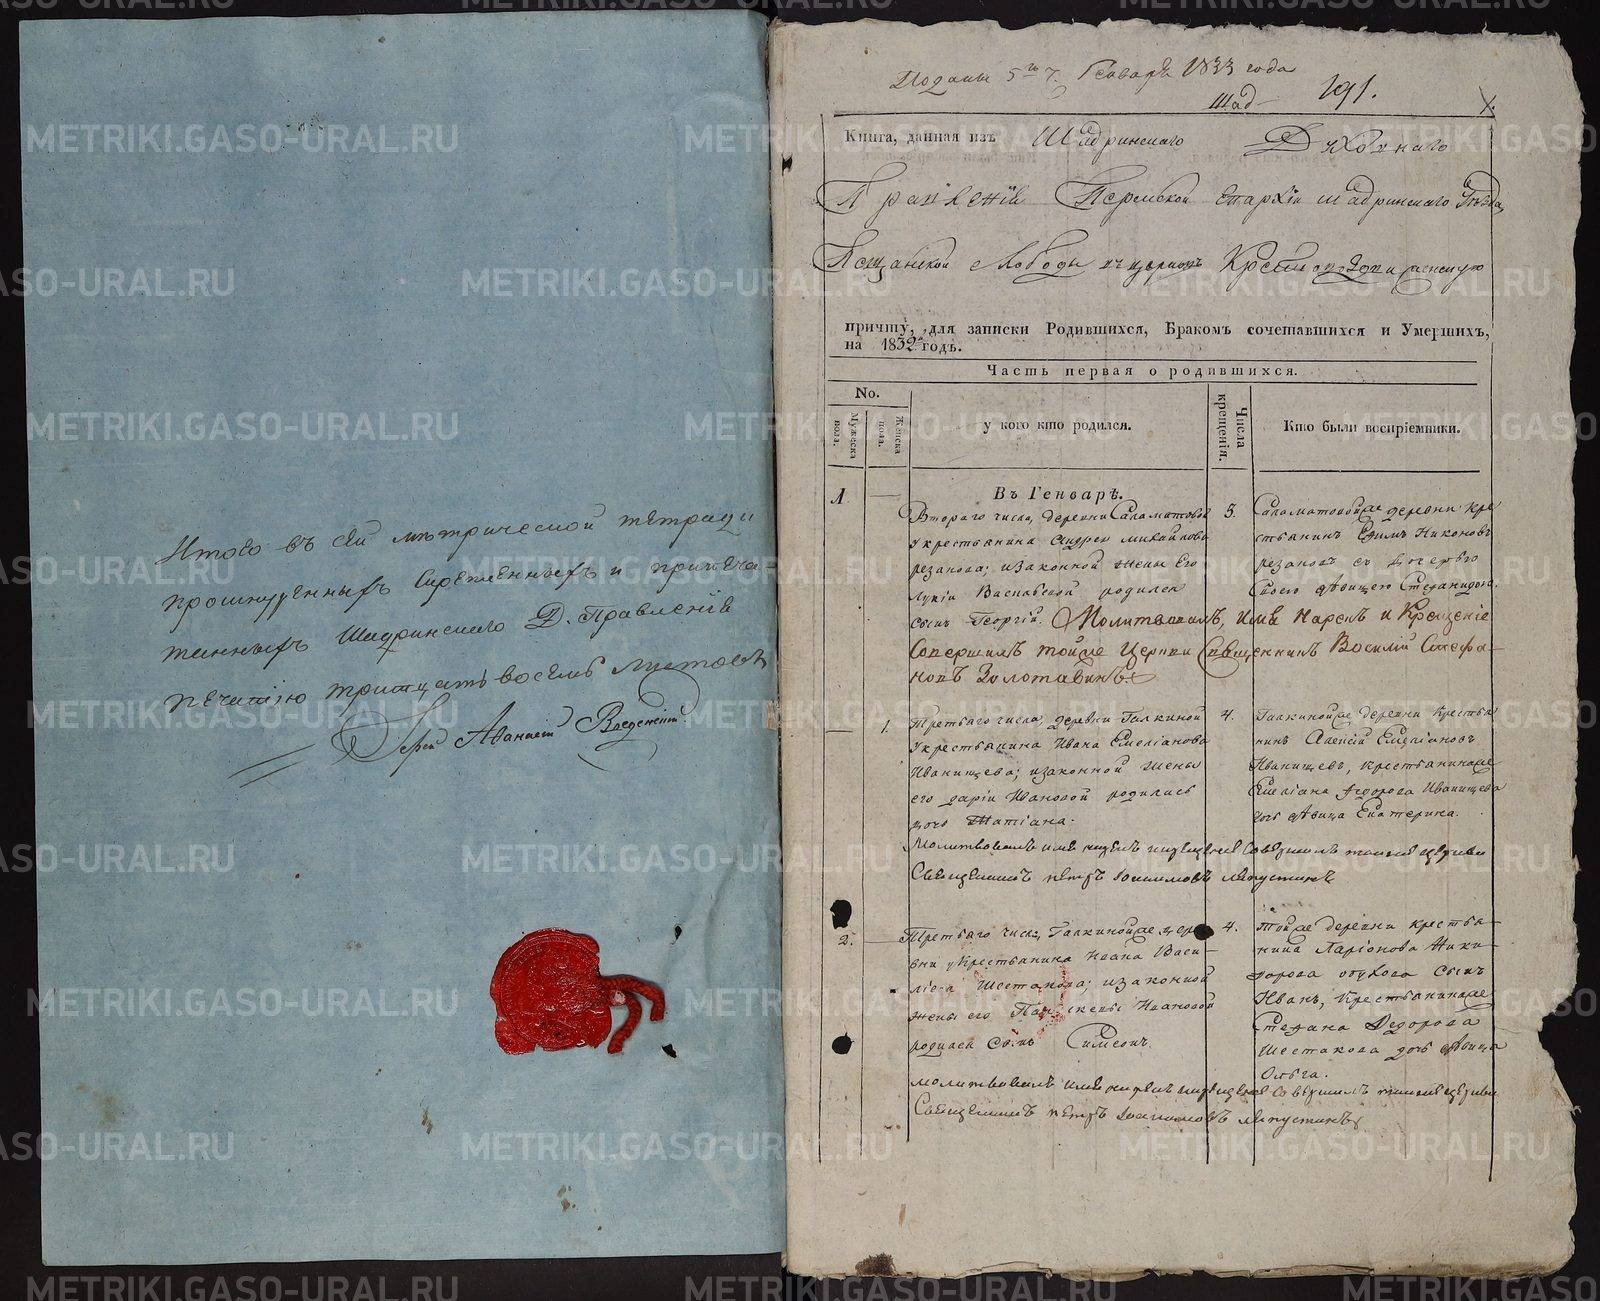 Итого въ сей метрической тетради
прошнуренныхъ скрепленныхъ и припеча-
танныхъ Шадринскаго Д. Правленiя
печатiю тритцать восемь листовъ
Iерей Аѳанасiй Введенскiй
Поданы 5го Генваря 1833 года
Шад 191.
Книга, данная изъ Шадринскаго Духовнаго
Правленiя Пермской епархiи Шадринскаго уѣзда,
Песчанской слободы къ церкви Крестовоздвиженскую
причту, для записки Родившихся, Бракомъ сочетавшихся и Умершихъ,
на 1832й годъ.
Часть первая о родившихся.
No.
Мужеска пола.
Женска пола.
у кого кто родился.
Числа крещенiя.
Кто были воспрiемники.
Въ Генварѣ.
1
Втораго числа, деревни Саламатовой
у крестьянина Андрея Михайлова
Резанова; изаконной жены Его
Лукiи Васильевой родился
сынъ Георгiй.
3.
Саламатовойже деревни кре
стьянинъ Ефимъ Никоновъ
резановъ съ дочерью
своею девицею Степанидою.
Молитвовалъ, имя нарекъ и Крещенiе
совершилъ тойже Церкви Священникъ Василiй Стефа-
новъ Золотавинъ.
1.
Третьяго числа, деревни Галкиной
у крестьянина Ивана Емелiанова
Иванищева; изаконной жены
его Дарiи Ивановой родилась
дочь Татiана.
4.
Галкинойже деревни крестья
нинъ Алексiй Емелiановъ
Иванищевъ, крестьянинаже
Емелiана Федорова Иванищева
дочь девица Екатерина.
Молитвовалъ имя нарекъ икрещенiе совершилъ тоиже церкви
Священникъ петръ Iоакимовъ ляпустинъ
2.
Третьяго числа, Галкинойже дере
вни у крестьянина Ивана Васи-
лiева Шестакова; изаконной
жены его Параскевы Ивановой
родился сынъ Симеонъ.
4.
Тойже деревни крестья-
нина Ларiонова Ники-
форова сынъ
Иванъ, крестьянинаже
Стефана Федорова
Шестакова дочь девица
Ольга.
молитвовалъ имя нарекъ икрещенiе совершилъ тоиже церкви
Священникъ петръ Iоакимовъ ляпустинъ
METRIKI.GASO-URAL.RU